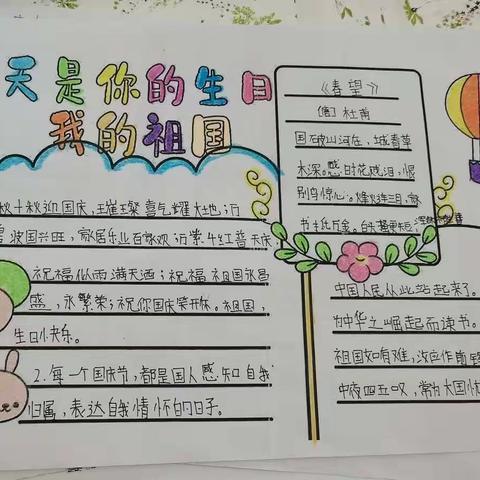 天是你的生日
我的祖国
秋十秋迎国庆,璀璨喜气耀大地;万
波国兴旺,家居乐业百家欢
祝福似雨满天洒;祝福祖国永昌
盛,永繁荣;祝你国庆笑开怀。祖国,
生日快乐。
2.每一个国庆节,都是国人感知自我
归属,表达自我情怀的日子。
《春望》
(唐)杜甫
国破山河在,城春草
木深。感时花溅泪,恨
别鸟惊心。烽火连三月,家
书抵万金。白头搔更短,浑欲不胜簪
中国人民从此站起来了。
为中华之崛起而读书。
祖国如有难,汝应作前锋
中夜四五叹,常为大国忧